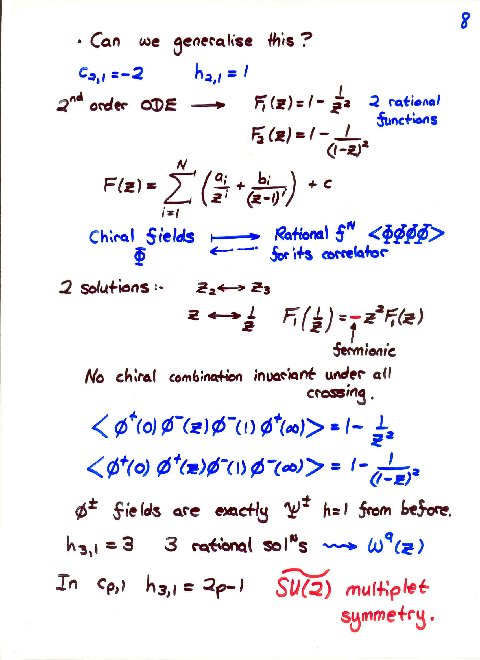 8
· Can we generalise this?
c₂,₁=-2 h₂,₁=1
2nd order ODE → F₁(z)=1-1/z² 2 rational
functions
F₂(z)=1-1/(1-z)²
F(z)=∑_{i=1}^{N}(a_i/z^i+b_i/(z-1)^i)+c
Chiral fields ↦ Rational fᴺ <ΦΦΦΦ>
Φ ← for its correlator
2 solutions:- z₂↔z₃
z↔1/z F₁(1/z)=-z²F₁(z)
fermionic
No chiral combination invariant under all
crossing.
<φ⁺(0)φ⁻(z)φ⁻(1)φ⁺(∞)>=1-1/z²
<φ⁺(0)φ⁺(z)φ⁻(1)φ⁻(∞)>=1-1/(1-z)²
φ± fields are exactly Ψ± h=1 from before.
h₃,₁=3 3 rational solᴺs ⇝ Wᵃ(z)
In c_{p,1} h₃,₁=2p-1 S͠U(2) multiplet
symmetry.